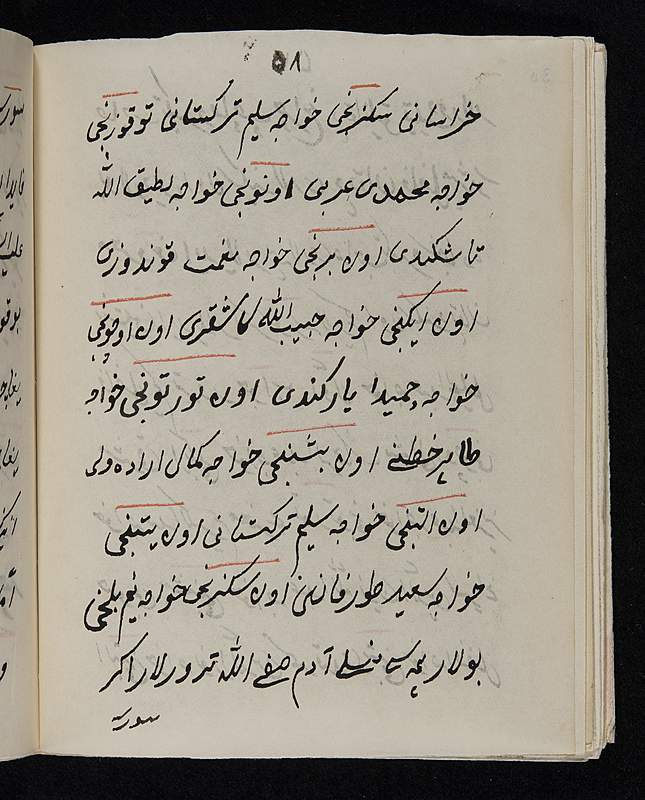 ٥٨
خراسانی سکزنجی خواجه سلیم ترکستانی توقوزنجی
خواجه محمدی عربی اونونجی خواجه لطیف الله
تاشکندی اون برنجی خواجه نعمت قوندوزی
اون ایکنجی خواجه حبیب الله کاشقری اون اوچونجی
خواجه حمیدا یارکندی اون تورتونجی خواجه
طاهر خطنے اون بشنجی خواجه کمال اراده ولی
اون التنجی خواجه سلیم ترکستانی اون یتنجی
خواجه سعید طورفانی اون سکزنجی خواجه نیم بلخی
بولار نسلے آدم صفے الله تدورلار اکر